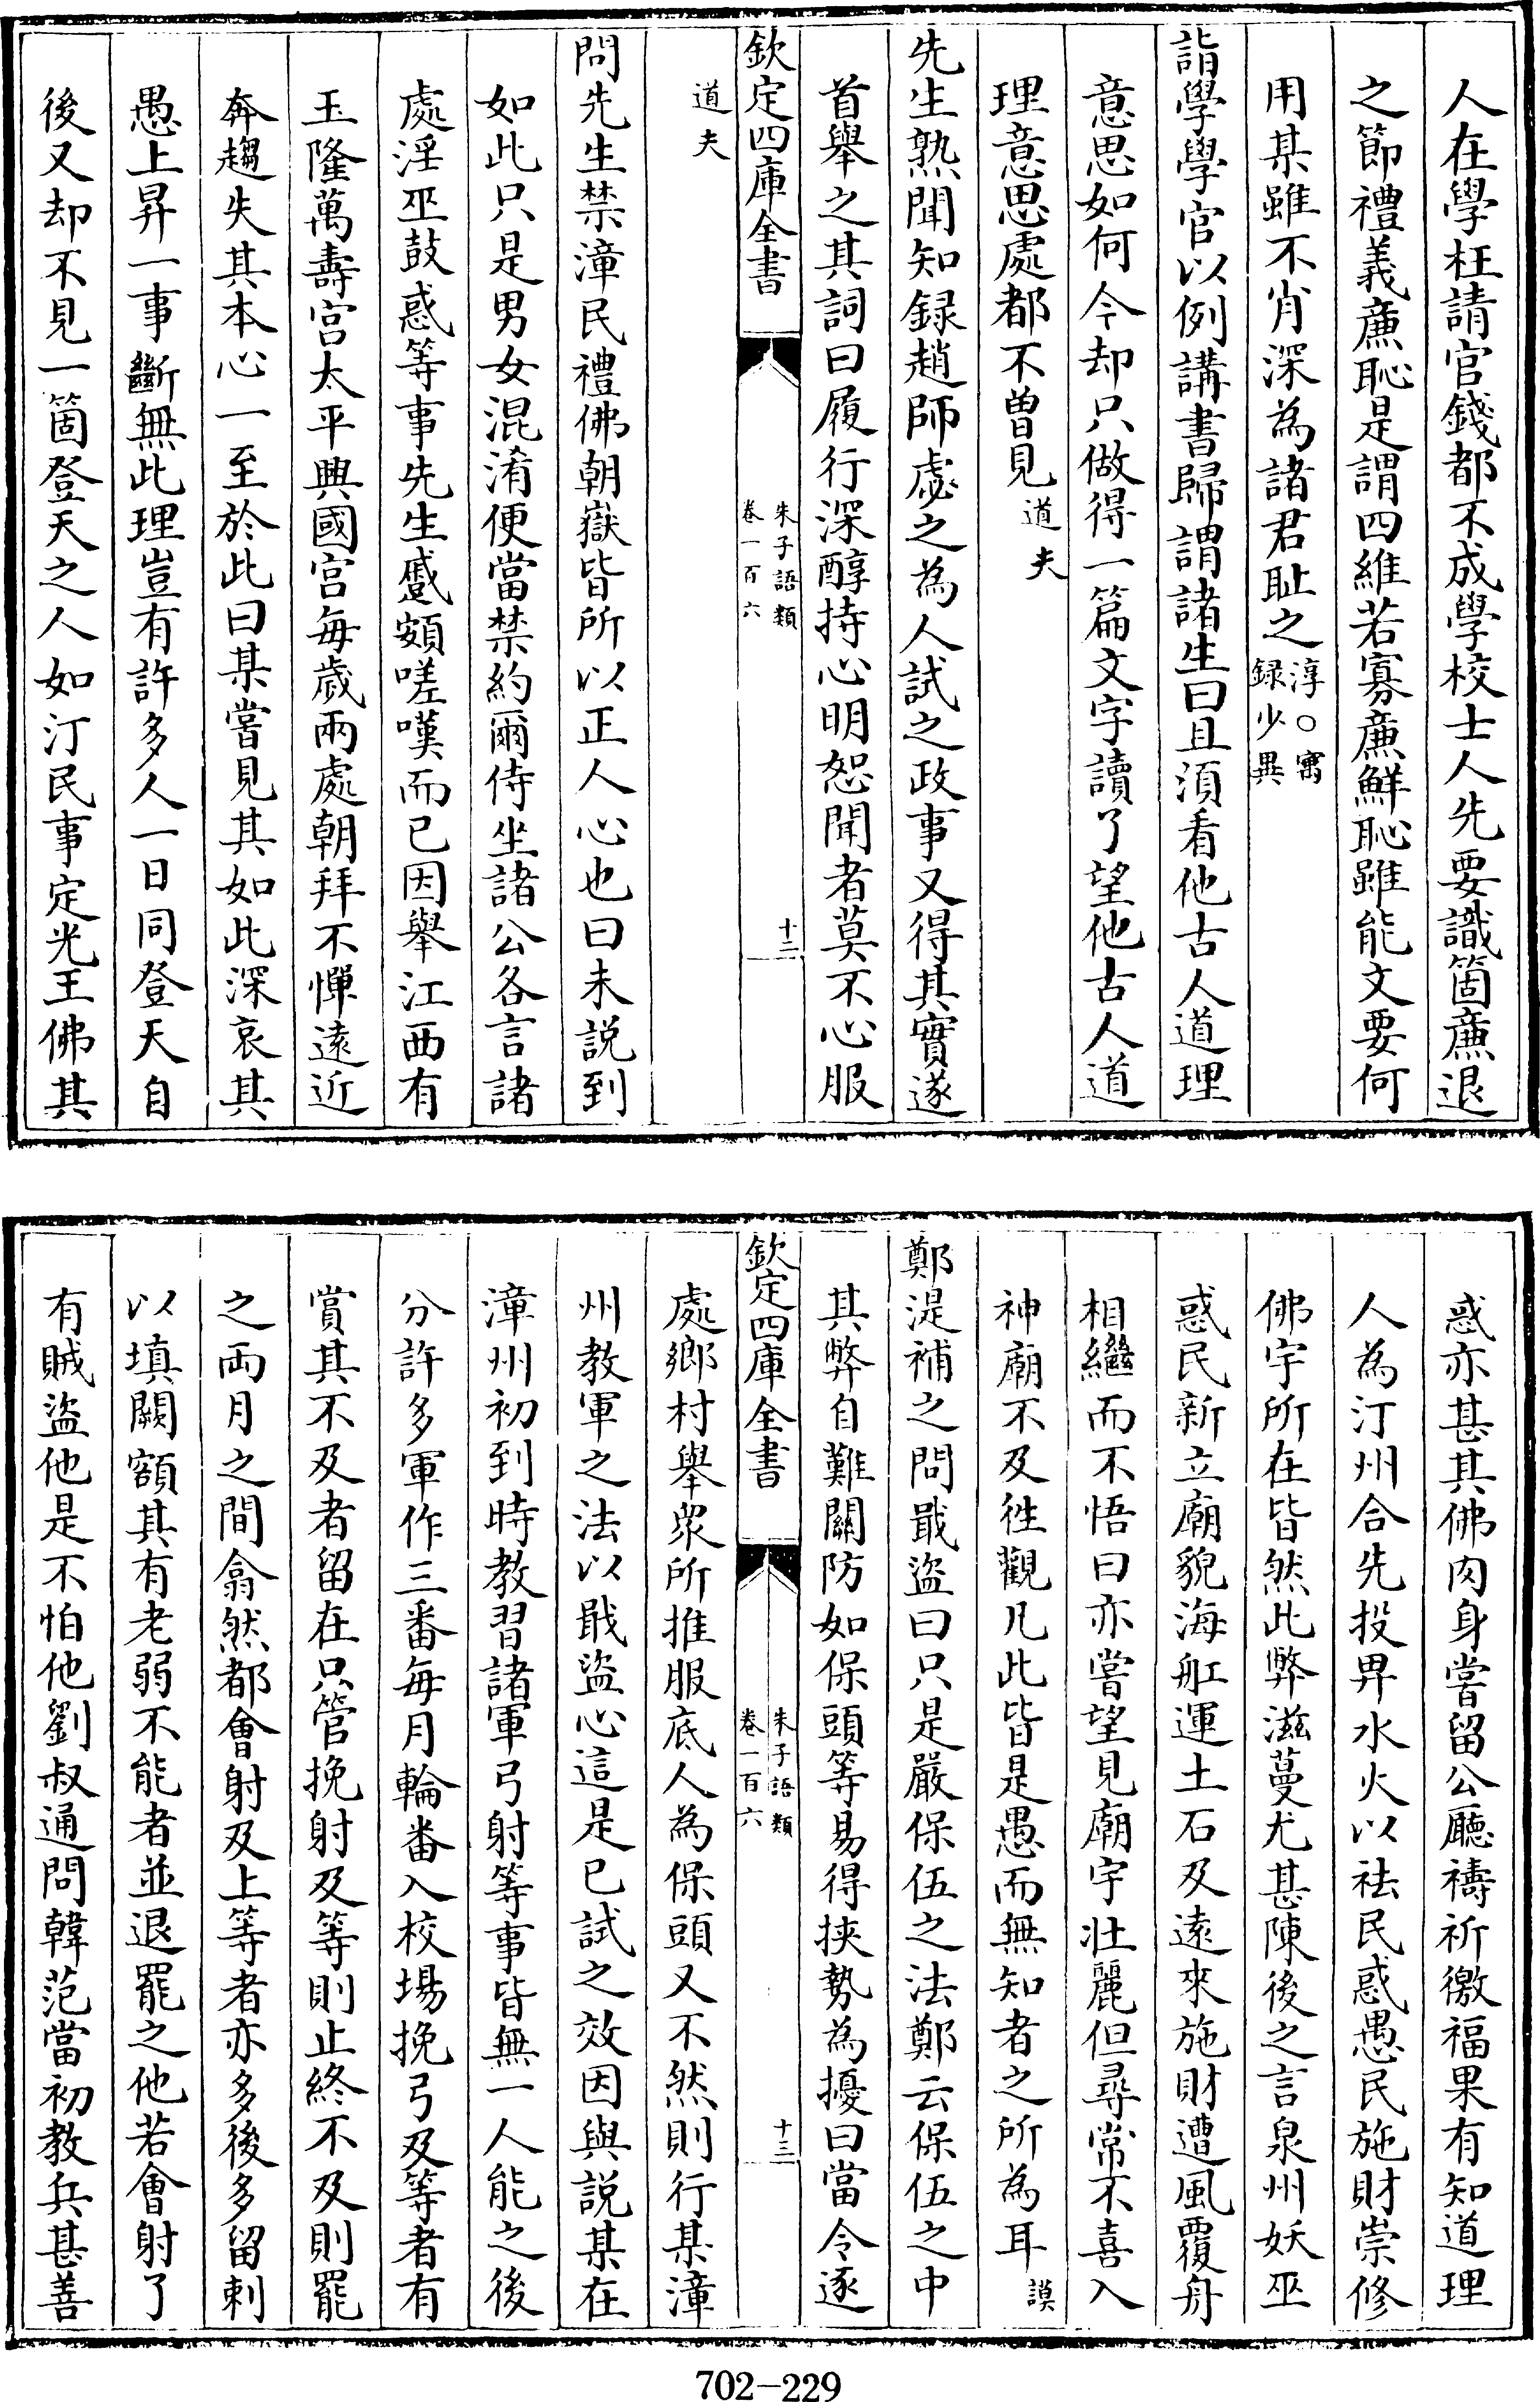 人在學枉請官錢都不成學校士人先要識箇廉退
之節禮義廉恥是謂四維若寡廉鮮恥雖能文要何
用某雖不肖深為諸君耻之淳○寓
録少異
詣學學官以例講書歸謂諸生曰且須看他古人道理
意思如何今却只做得一篇文字讀了望他古人道
理意思處都不曽見道夫
先生熟聞知録趙師虙之為人試之政事又得其實遂
首舉之其詞曰履行深醇持心明恕聞者莫不心服
欽定四庫全書
朱子語類
卷一百六
十二
道夫
問先生禁漳民禮佛朝嶽皆所以正人心也曰未説到
如此只是男女混淆便當禁約爾侍坐諸公各言諸
處淫巫鼓惑等事先生蹙頞嗟嘆而已因舉江西有
玉隆萬壽宫太平興國宫每歲兩處朝拜不憚遠近
奔趨失其本心一至於此曰某嘗見其如此深哀其
愚上昇一事斷無此理豈有許多人一日同登天自
後又却不見一箇登天之人如汀民事定光王佛其
惑亦甚其佛肉身嘗留公廳禱祈徼福果有知道理
人為汀州合先投畀水火以袪民惑愚民施財崇修
佛宇所在皆然此弊滋蔓尤甚陳後之言泉州妖巫
惑民新立廟貌海舡運土石及遠來施財遭風覆舟
相繼而不悟曰亦嘗望見廟宇壯麗但尋常不喜入
神廟不及徃觀凡此皆是愚而無知者之所為耳謨
鄭湜補之問戢盜曰只是嚴保伍之法鄭云保伍之中
其弊自難關防如保頭等易得挾勢為擾曰當令逐
欽定四庫全書
朱子語類
卷一百六
十三
處鄉村舉衆所推服底人為保頭又不然則行某漳
州教軍之法以戢盜心這是已試之效因與説某在
漳州初到時教習諸軍弓射等事皆無一人能之後
分許多軍作三番每月輪番入校場挽弓及等者有
賞其不及者留在只管挽射及等則止終不及則罷
之両月之間翕然都會射及上等者亦多後多留刺
以填闕額其有老弱不能者並退罷之他若會射了
有賊盜他是不怕他劉叔通問韓范當初教兵甚善
702-229